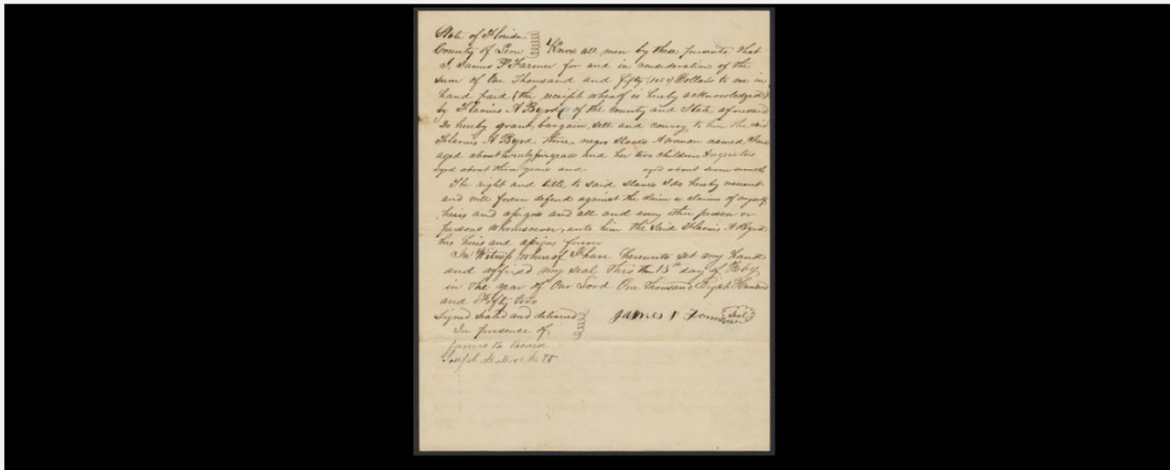 State of Florida
County of Leon Know all men by these presents that
I James P Farmer for and in consideration of the
sum of One Thousand and fifty (1050) Dollars to me in
hand paid (the receipt whereof is hereby acknowledged)
by Flavius A Byrd of the county and State aforesaid
Do hereby grant, bargain, sell and convey to him the said
Flavius A Byrd three negro slaves A woman named
aged about and her two children
aged about three years and aged about seven months
The right and title to said slaves I do hereby warrant
and will forever defend against the claim or claims of myself
heirs and assigns and all and every other person or
persons whomsoever, unto him the said Flavius A Byrd
his heirs and assigns forever
In Witness whereof I have hereunto set my hand
and affixed my seal this the 13th day of Feby
in the year of Our Lord One Thousand Eight Hundred
and Fifty two
Signed sealed and delivered James P Farmer Seal
In presence of
James B Beard
Joseph